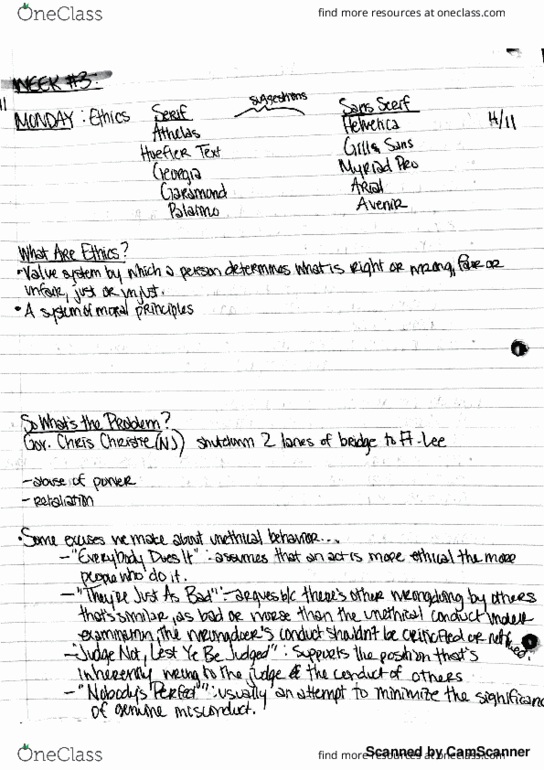 OneClass
find more resources at oneclass.com
WEEK #3:
MONDAY: Ethics
Serif
suggestions
Sans Serif
4/11
Athelas
Helvetica
Hoefler Text
Gill Sans
Georgia
Myriad Pro
Garamond
Arial
Palatino
Avenir
What Are Ethics?
•Value system by which a person determines what is right or wrong, fair or
unfair, just or unjust.
• A system of moral principles
So What's the Problem?
Gov. Chris Christie (NJ) shutdown 2 lanes of bridge to Ft. Lee
-abuse of power
-retaliation
•Some excuses we make about unethical behavior...
-"Everybody Does It": assumes that an act is more ethical the more
people who do it.
-"They're Just As Bad": argues b/c there's other wrongdoing by others
that's similar, as bad or worse than the unethical conduct under
examination, the wrongdoer's conduct shouldn't be criticized or noticed.
-"Judge Not, Lest Ye Be Judged": supports the position that's
inherently wrong to the judge the conduct of others
-"Nobody's Perfect": usually an attempt to minimize the significance
of genuine misconduct.
OneClass
find more resources at oneclass.com
Scanned by CamScanner